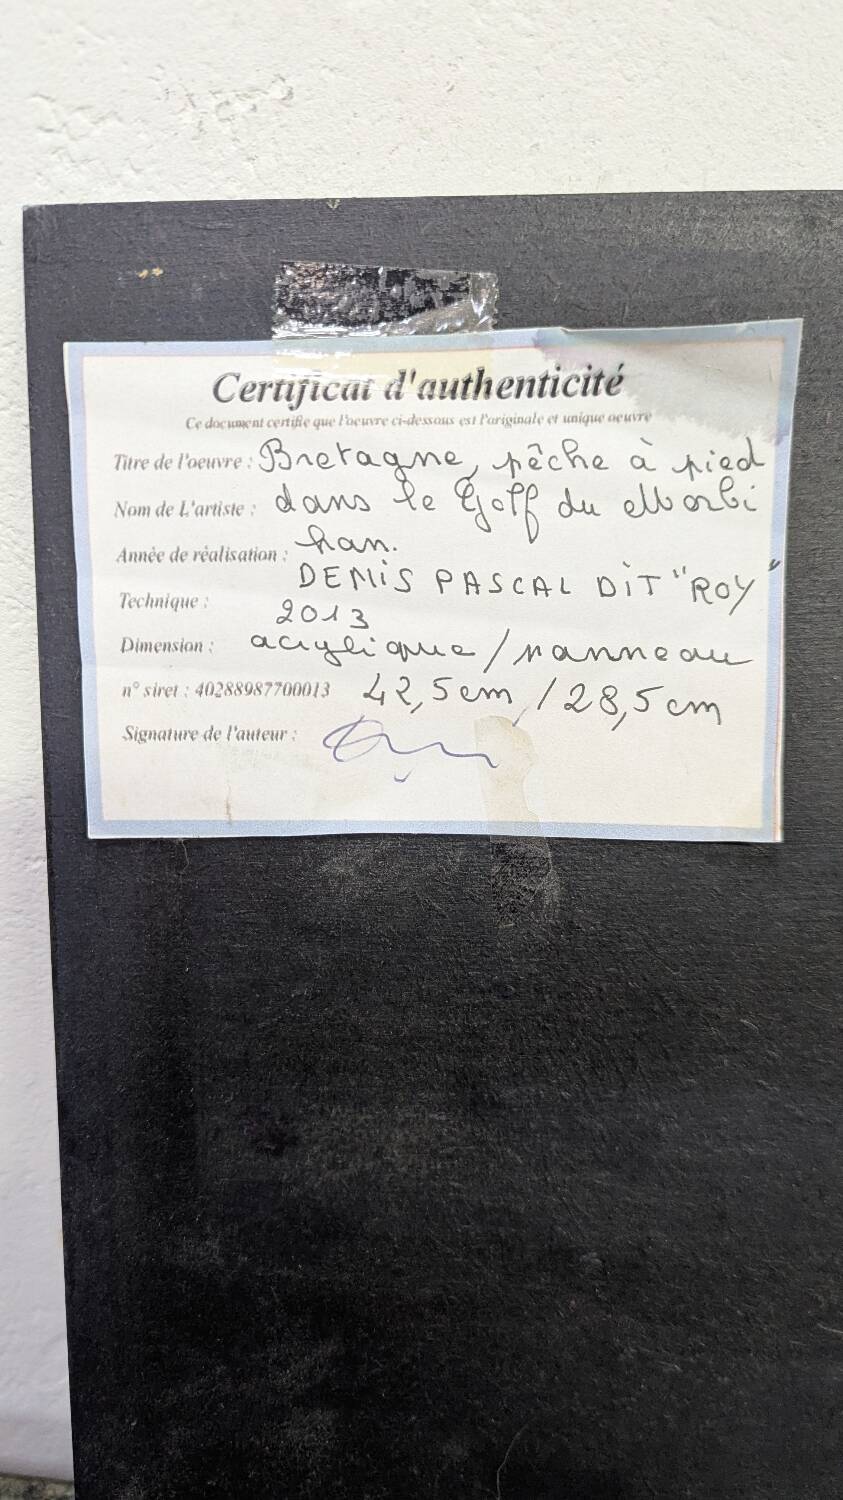 Certificat d'authenticité
Ce document certifie que l'oeuvre ci-dessous est l'originale et unique oeuvre
Titre de l'oeuvre : Bretagne, pêche à pied
Nom de L'artiste : dans le Golf du Morbi
Année de réalisation : han.
DEMIS PASCAL DIT "ROY"
Technique : 2013
Dimension : acrylique / panneau
n° siret : 40288987700013 42,5cm / 28,5cm
Signature de l'auteur :